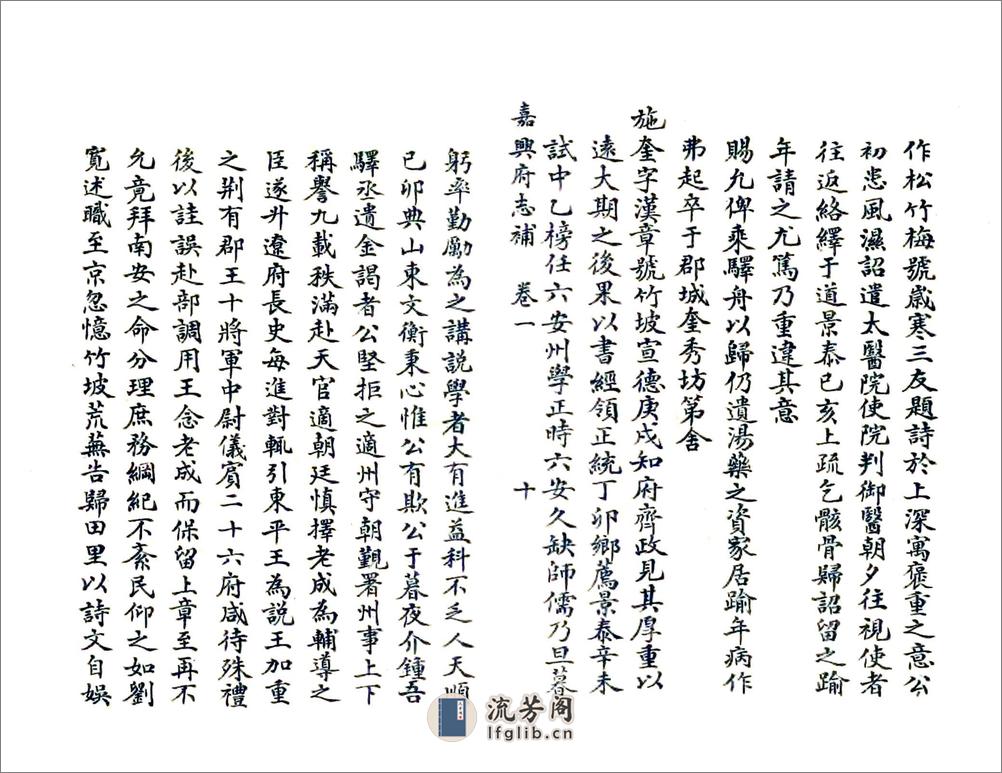 作松竹梅號歲寒三友題詩於上深寓褒重之意公
初患風濕詔遣太醫院使院判御醫朝夕往視使者
往返絡繹于道景泰己亥上疏乞骸骨歸詔留之踰
年請之尤篤乃重違其意
賜允俾乘驛舟以歸仍遺湯藥之資家居踰年病作
弗起卒于郡城奎秀坊第舍
施奎字漢章號竹坡宣德庚戌知府齊政見其厚重以
遠大期之後果以書經領正統丁卯鄉薦景泰辛未
試中乙榜任六安州學正時六安久缺師儒乃旦暮
嘉興府志補 卷一 十
躬率勤勵為之講説學者大有進益科不乏人天順
己卯典山東文衡秉心惟公有欺公于暮夜介鍾吾
驛丞遺金謁者公堅拒之適州守朝覲署州事上下
稱譽九載秩滿赴天官適朝廷慎擇老成為輔導之
臣遂升遼府長史每進對輒引東平王為説王加重
之荆有郡王十將軍中尉儀賓二十六府咸待殊禮
後以詿誤赴部調用王念老成而保留上章至再不
允竟拜南安之命分理庶務綱紀不紊民仰之如劉
寬述職至京忽憶竹坡荒蕪告歸田里以詩文自娛
流芳阁
lfglib.cn